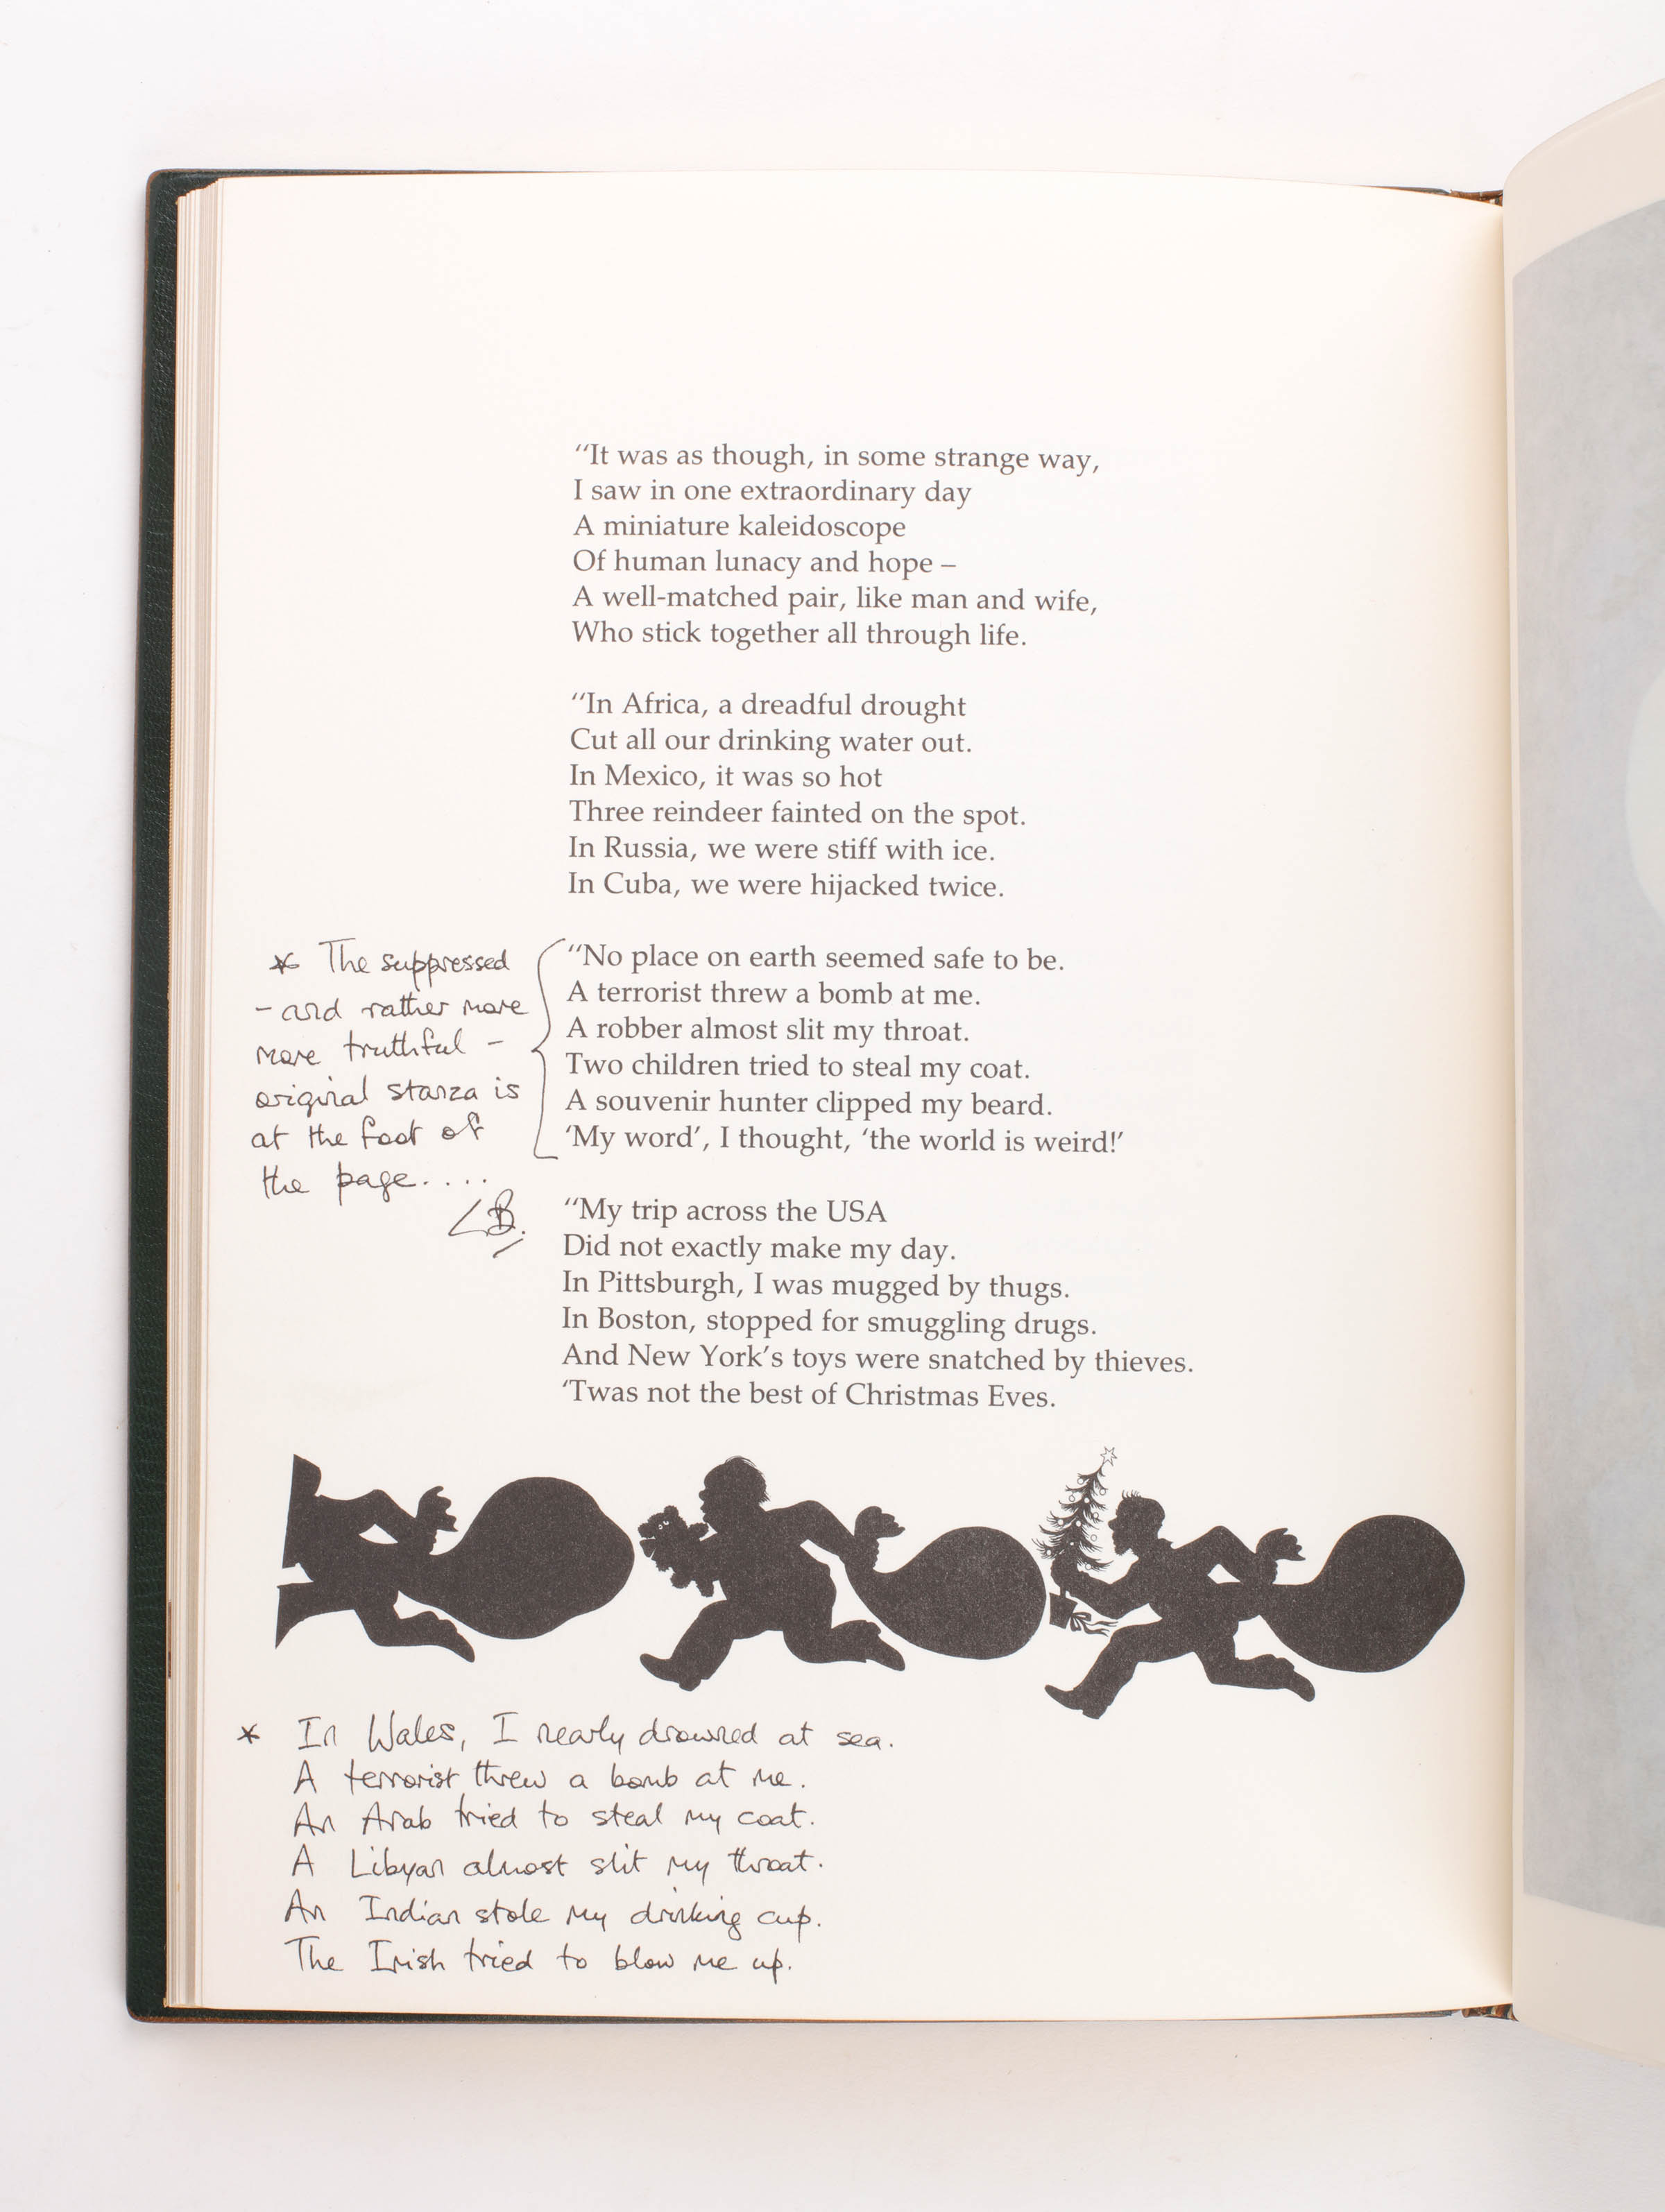 “It was as though, in some strange way,
I saw in one extraordinary day
A miniature kaleidoscope
Of human lunacy and hope –
A well-matched pair, like man and wife,
Who stick together all through life.
“In Africa, a dreadful drought
Cut all our drinking water out.
In Mexico, it was so hot
Three reindeer fainted on the spot.
In Russia, we were stiff with ice.
In Cuba, we were hijacked twice.
* The suppressed
- and rather more
more truthful -
original stanza is
at the foot of
the page....
LB.
“No place on earth seemed safe to be.
A terrorist threw a bomb at me.
A robber almost slit my throat.
Two children tried to steal my coat.
A souvenir hunter clipped my beard.
‘My word’, I thought, ‘the world is weird!’
“My trip across the USA
Did not exactly make my day.
In Pittsburgh, I was mugged by thugs.
In Boston, stopped for smuggling drugs.
And New York’s toys were snatched by thieves.
‘Twas not the best of Christmas Eves.
* In Wales, I nearly drowned at sea.
A terrorist threw a bomb at me.
An Arab tried to steal my coat.
A Libyan almost slit my throat.
An Indian stole my drinking cup.
The Irish tried to blow me up.